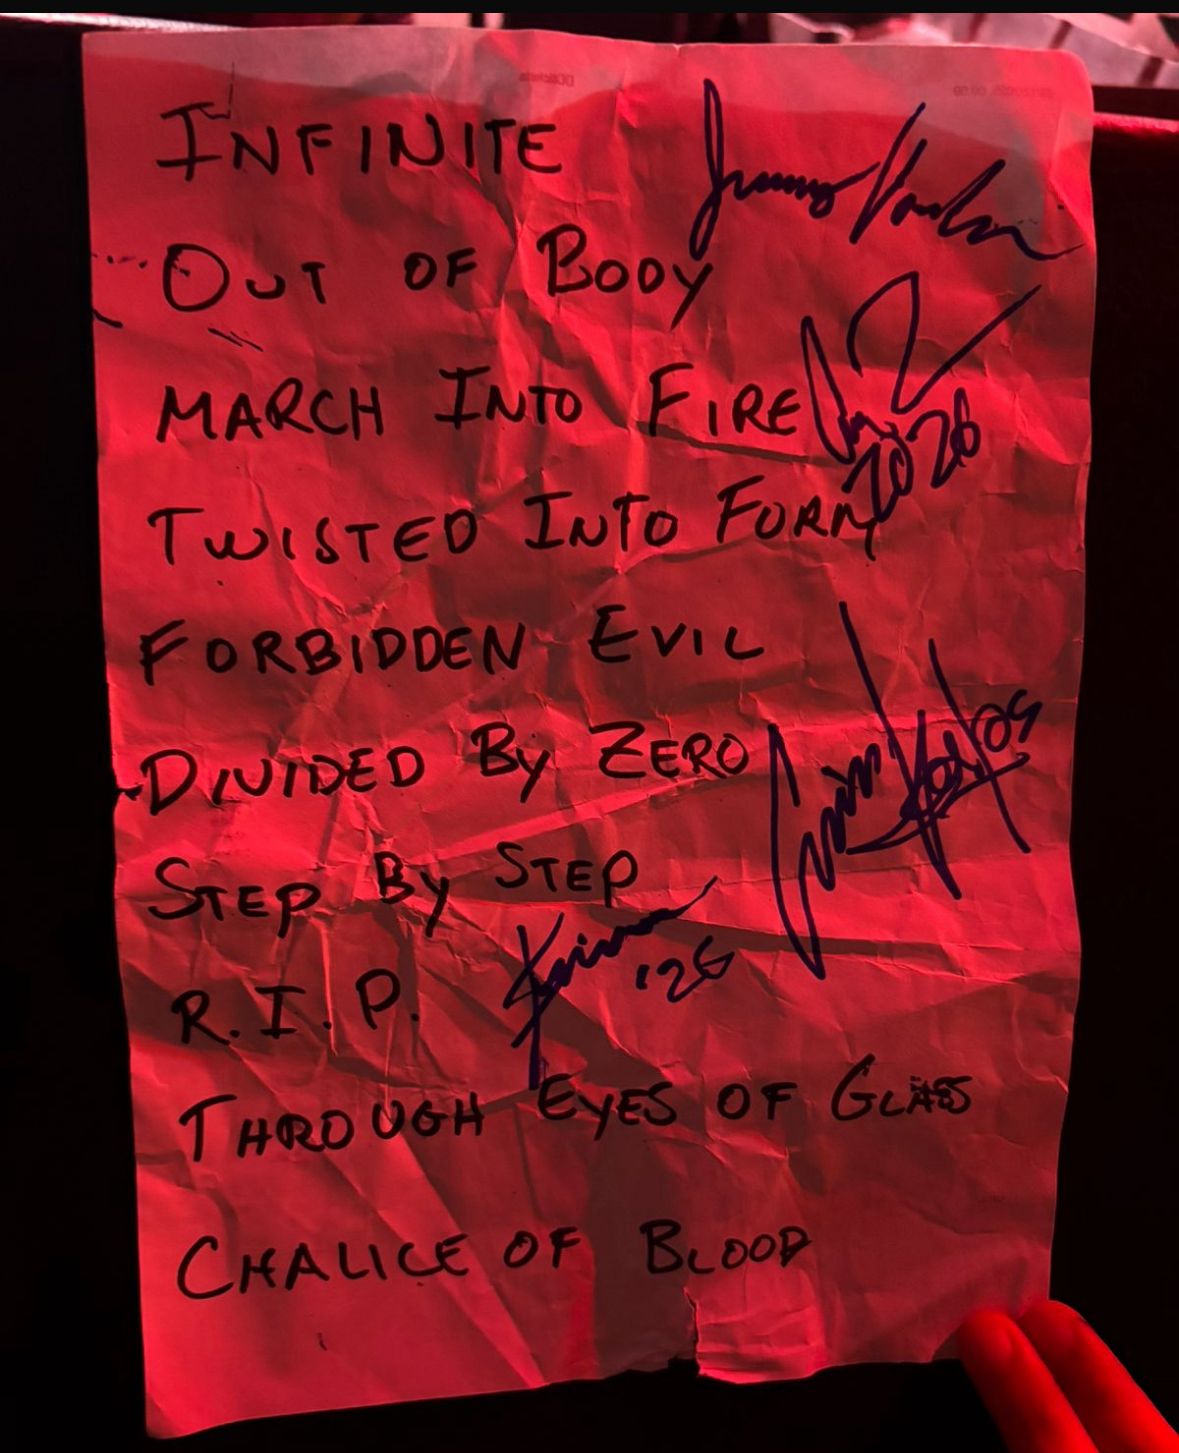 INFINITE
OUT OF BODY
MARCH INTO FIRE
2026
TWISTED INTO FORM
FORBIDDEN EVIL
DIVIDED BY ZERO
STEP BY STEP
'26
R.I.P.
THROUGH EYES OF GLASS
CHALICE OF BLOOD